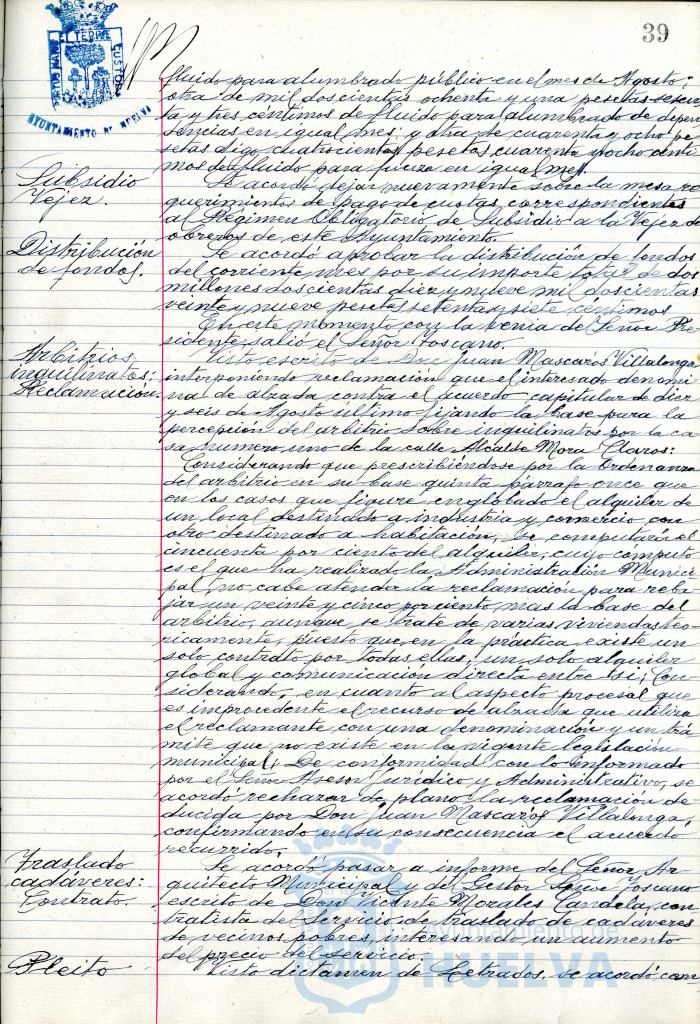 39
PORTUS MARIS ET TERRE CUSTODIA
AYUNTAMIENTO DE HUELVA
fluido para alumbrado público en el mes de Agosto;
otra de mil doscientas ochenta y una pesetas sesen
ta y tres céntimos de fluido para alumbrado de depen
dencias en igual mes; y otra de cuarenta y ocho pe
setas digo cuatrocientas pesetas cuarenta y ocho cénti
mos de fluido para fuerza en igual mes.
Subsidio
Vejez.
Se acordó dejar nuevamente sobre la mesa re
querimientos de pago de cuotas, correspondientes
al Régimen Obligatorio de Subsidio a la Vejez de
obreros de este Ayuntamiento.
Distribución
de fondos.
Se acordó aprobar la distribución de fondos
del corriente mes por su importe total de dos
millones doscientas diez y nueve mil doscientas
veinte y nueve pesetas setenta y siete céntimos.
En este momento con la venia del Señor Pre
sidente, salió el Señor Toscano.
Arbitrios
inquilinatos:
Reclamación.
Visto escrito de Don Juan Mascarós Villalonga,
interponiendo reclamación que el interesado denomi
na de alzada contra el acuerdo capitular de diez
y seis de Agosto último fijando la base para la
percepción del arbitrio sobre inquilinatos por la ca
sa número uno de la calle Alcalde Mora Claros:
Considerando que prescribiéndose por la Ordenanza
del arbitrio en su base quinta párrafo once que
en los casos que figure englobado el alquiler de
un local destinado a industria y comercio, con
otro destinado a habitación, se computará el
cincuenta por ciento del alquiler, cuyo cómputo
es el que ha realizado la Administración Munici
pal, no cabe atender la reclamación para reba
jar un veinte y cinco por ciento mas la base del
arbitrio, aunque se trate de varias viviendas teo
ricamente, puesto que, en la práctica existe un
solo contrato por todas ellas, un solo alquiler
global y comunicación directa entre si; Con
siderando, en cuanto al aspecto procesal que
es improcedente el recurso de alzada que utiliza
el reclamante con una denominación y un trá
mite que no existe en la vigente legislación
municipal; De conformidad con lo informado
por el Señor Asesor Jurídico y Administrativo, se
acordó rechazar de plano la reclamación de
ducida por Don Juan Mascarós Villalonga,
confirmando en su consecuencia el acuerdo
recurrido.
Traslado
cadáveres:
Contrato.
Se acordó pasar a informe del Señor Ar
quitecto Municipal y del Gestor Señor Toscano
escrito de Don Vicente Morales Candela, con
tratista del Servicio de traslado de cadáveres
de vecinos pobres, interesando un aumento
del precio del servicio.
Pleito
Visto dictamen de Letrados, se acordó con
Ayuntamiento de
HUELVA